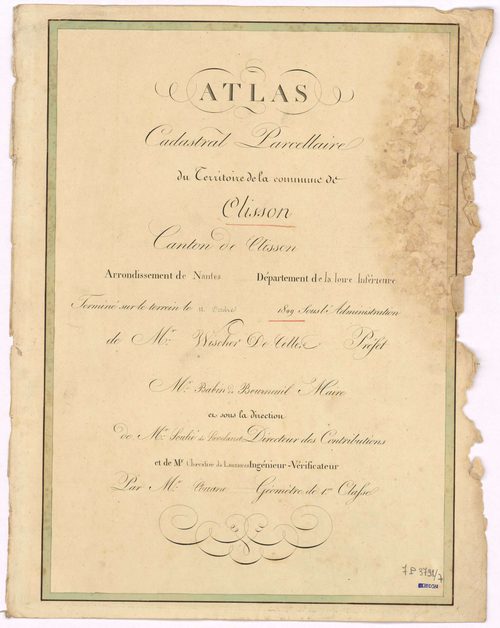 ATLAS
Cadastral Parcellaire
du Territoire de la commune de
Clisson
Canton de Clisson
Arrondissement de Nantes Département de la loire Inférieure
Terminé sur le terrein le 1809 Sous l'Administration
de Mr. De Préfet
Mr. Maire
et sous la direction
de Mr. Directeur des Contributions
et de Mr Ingénieur-Vérificateur
Par Mr. Géomètre de 1re Classe
7 P 3791/7